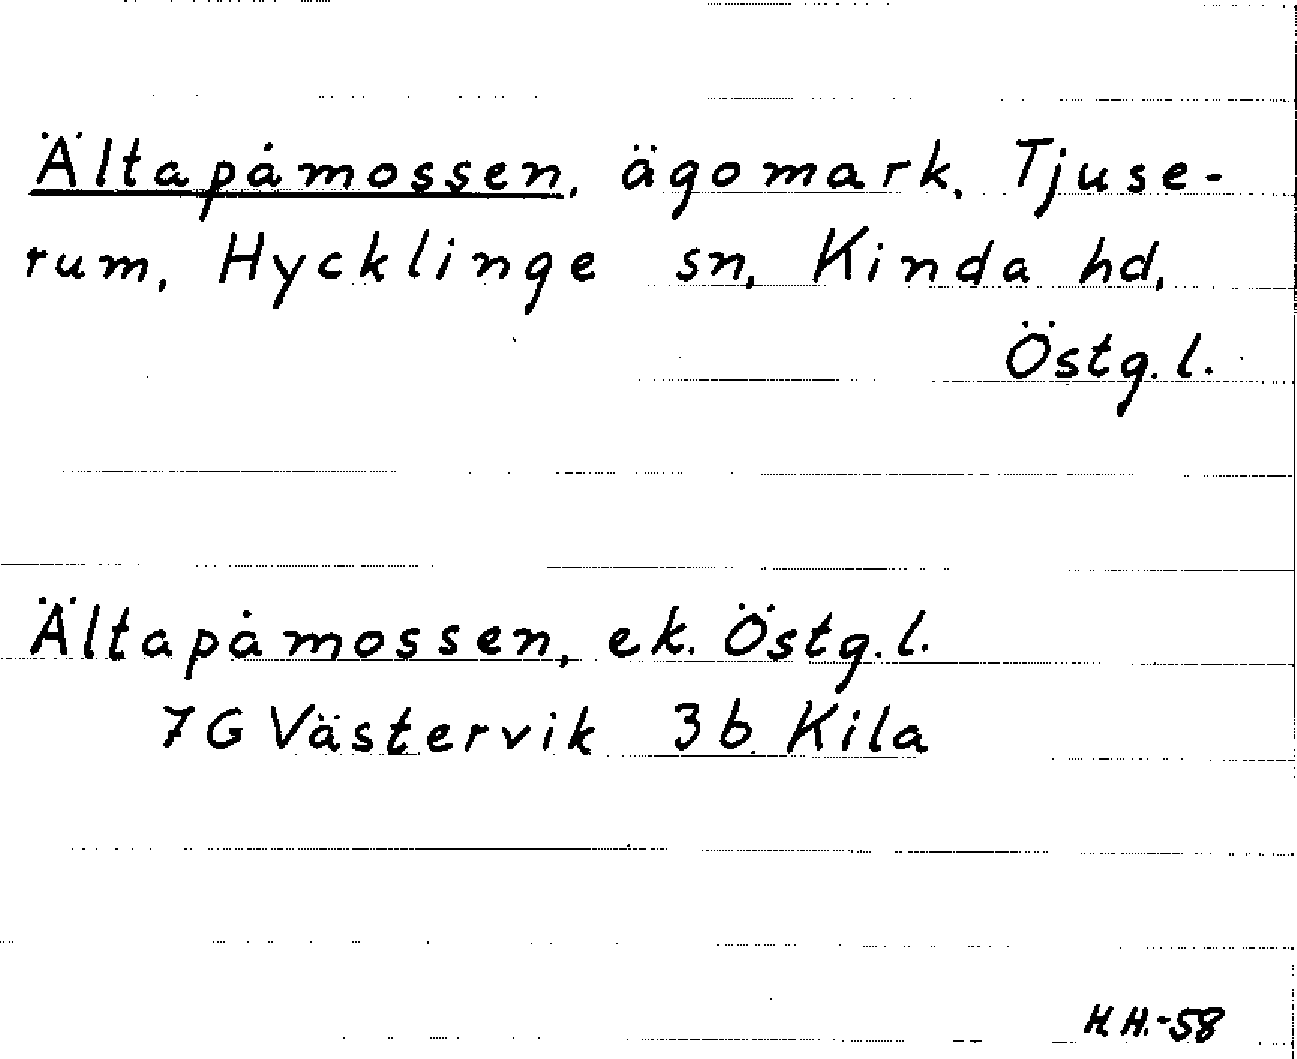 Ältapåmossen, ägomark, Tjuse-
rum, Hycklinge sn, Kinda hd,
Östg.l.
Ältapåmossen, ek. Östg.l.
7G Västervik 3b Kila
H.H.-58